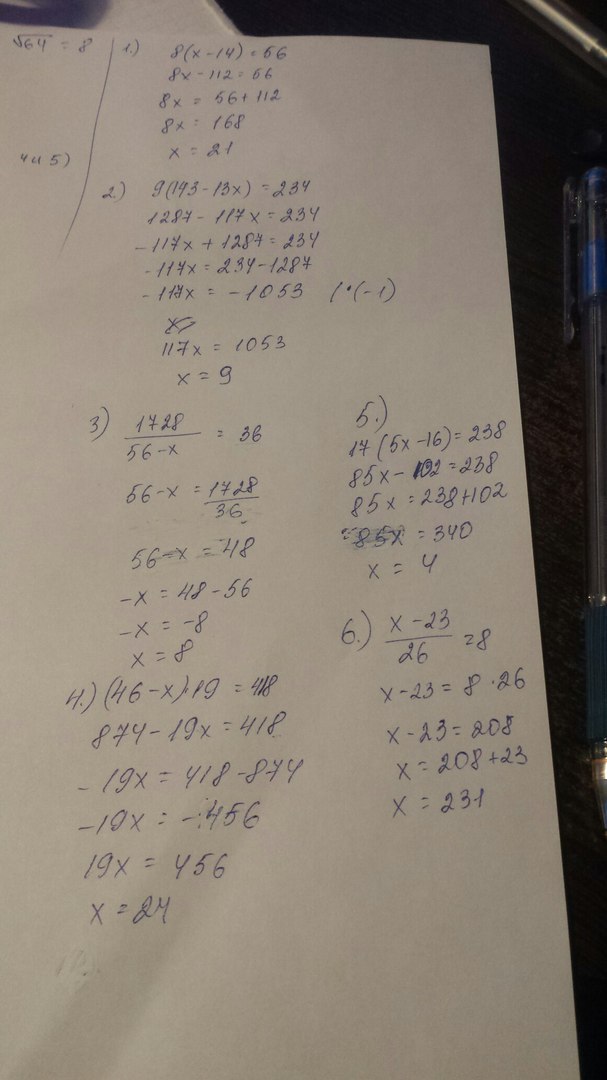 √64 = 8
4 и 5)
1.) 8(x-14)=56
8x-112=56
8x = 56+112
8x = 168
x = 21
2.) 9(143-13x)=234
1287-117x=234
-117x+1287=234
-117x=234-1287
-117x = -1053 |·(-1)
117x = 1053
x = 9
3) 1728/56-x = 36
56-x = 1728/36
56-x = 48
-x = 48-56
-x = -8
x = 8
4.) (46-x)·19 = 418
874-19x=418
-19x = 418-874
-19x = -456
19x = 456
x = 24
5.)
17(5x-16)=238
85x-102=238
85x=238+102
85x = 340
x = 4
6.) x-23/26 = 8
x-23 = 8·26
x-23=208
x=208+23
x = 231